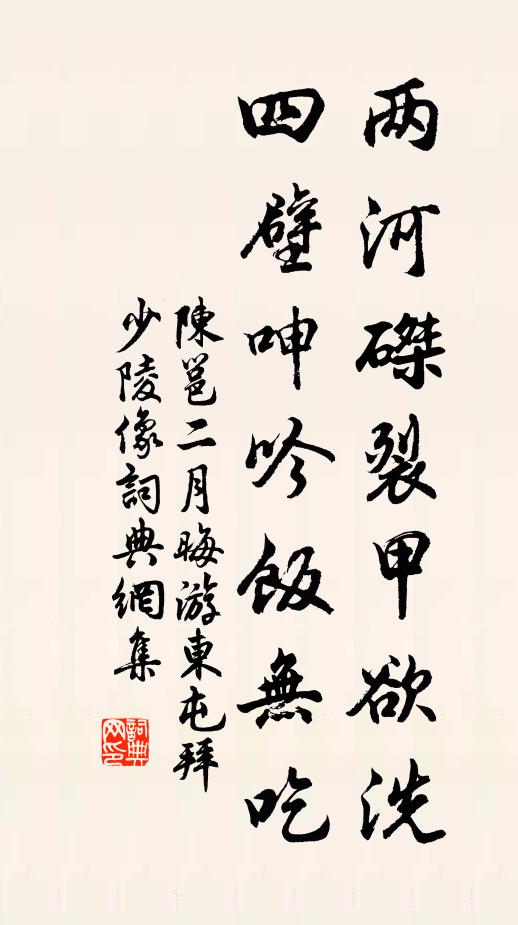 两河磔裂甲欲洗
四壁呻吟飯無吃
陳邕二月晦游東屯拜
少陵像詞典網集
詞典網印